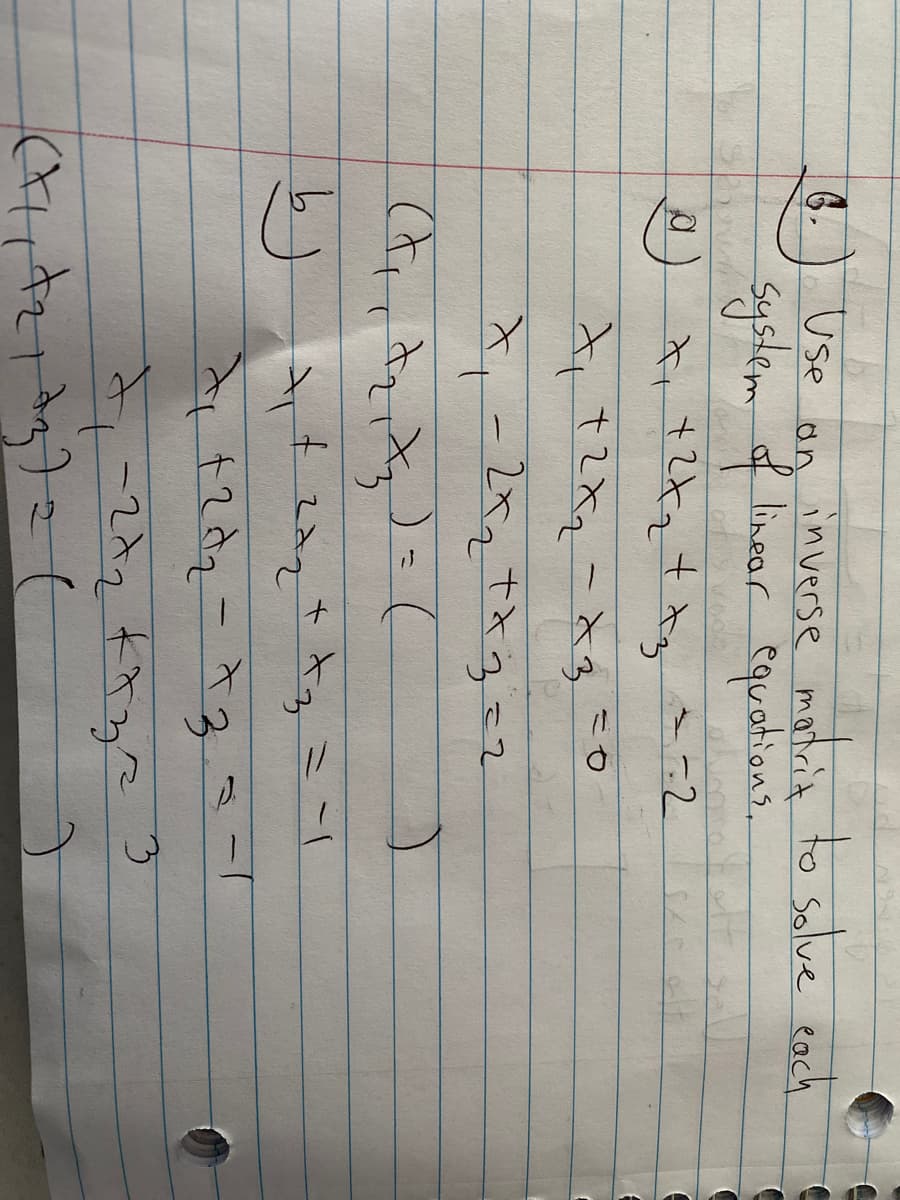 6.) Use an inverse matrix to solve each
system of linear equations.
a) x₁ + 2x₂ + x₃ = -2
x₁ + 2x₂ - x₃ = 0
x₁ - 2x₂ + x₃ = 2
(x₁, x₂, x₃) = ( )
b) x₁ + 2x₂ + x₃ = -1
x₁ + 2x₂ - x₃ = -1
x₁ - 2x₂ + x₃ = 3
(x₁, x₂, x₃) = ( )